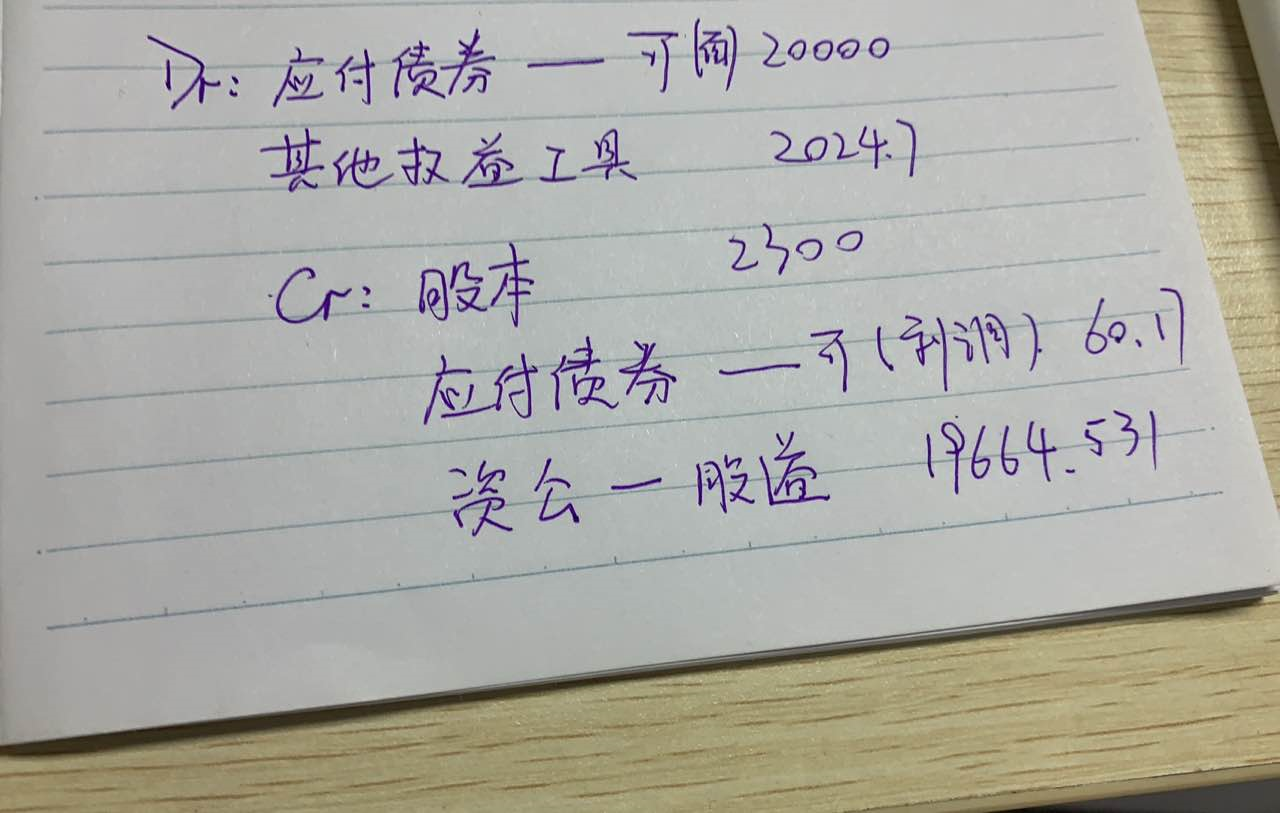 Dr: 应付债券 — 可(面) 20000
其他权益工具 2024.7
Cr: 股本 2300
应付债券 — 可(利调) 60.17
资公 — 股溢 19664.531